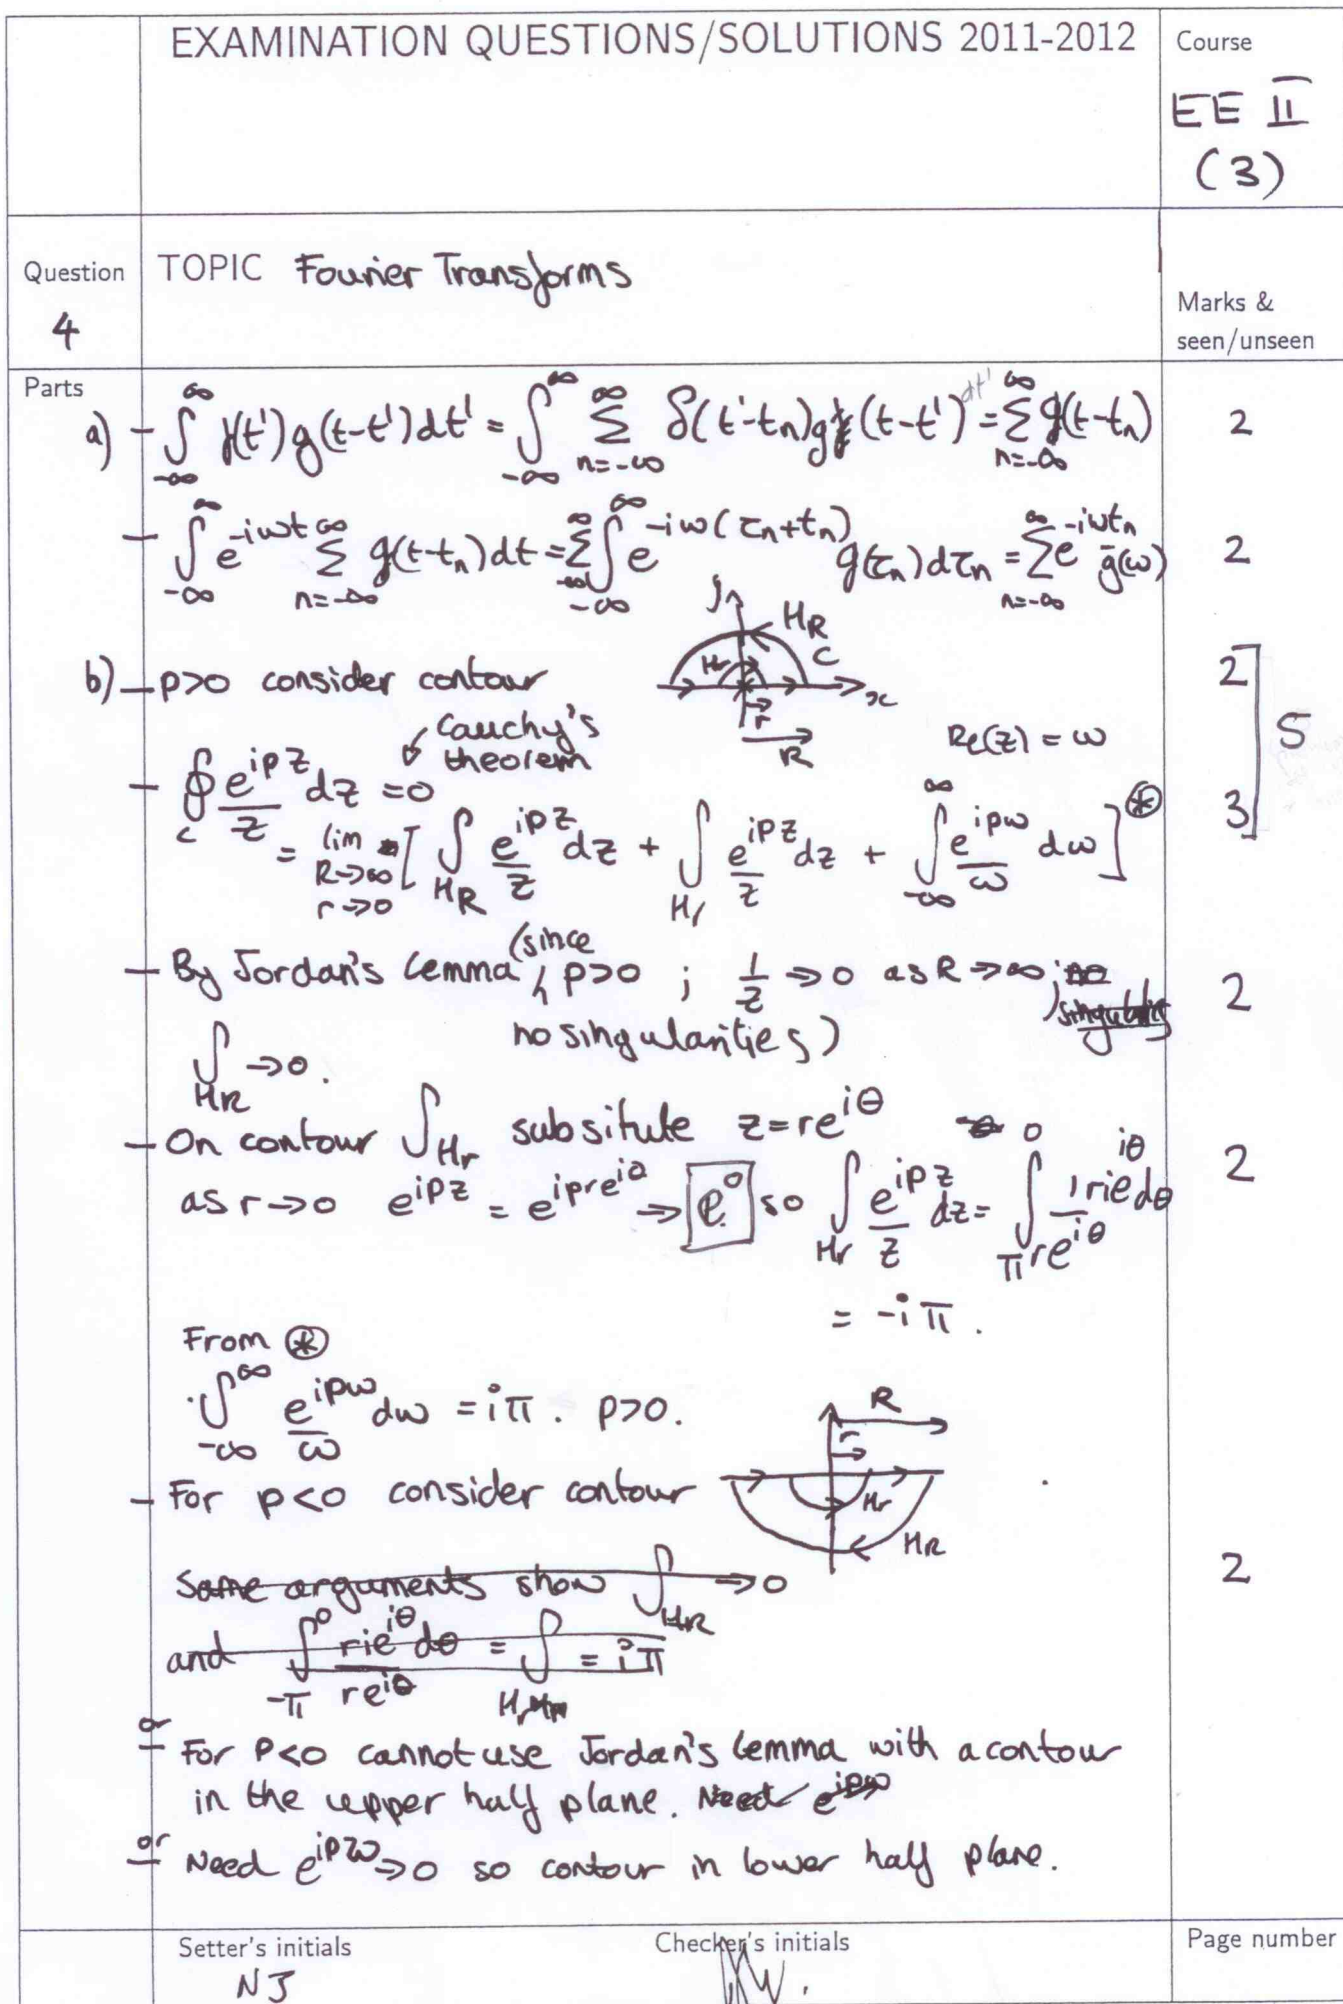 EXAMINATION QUESTIONS/SOLUTIONS 2011-2012
Course
EE II
(3)
Question
4
TOPIC Fourier Transforms
Marks &
seen/unseen
Parts
a) - ∫_{-∞}^{∞} f(t')g(t-t')dt' = ∫_{-∞}^{∞} Σ_{n=-∞}^{∞} δ(t'-t_n)g(t-t')dt' = Σ_{n=-∞}^{∞} g(t-t_n) 2
- ∫_{-∞}^{∞} e^{-iωt} Σ_{n=-∞}^{∞} g(t-t_n)dt = Σ_{-∞}^{∞} ∫_{-∞}^{∞} e^{-iω(τ_n+t_n)} g(τ_n)dτ_n = Σ_{n=-∞}^{∞} e^{-iωt_n} g̅(ω) 2
y H_R
H_r C
x
r
R
b) - p>0 consider contour 2
5
Cauchy's
theorem
Re(z) = ω
- ∮_C e^{ipz}/z dz = 0 3
= lim_{R→∞, r→0} [ ∫_{H_R} e^{ipz}/z dz + ∫_{H_r} e^{ipz}/z dz + ∫_{-∞}^{∞} e^{ipω}/ω dω ] ⊛
- By Jordan's Lemma, (since p>0 ; 1/z → 0 as R→∞; 2
singularity
no singularities)
∫_{H_R} → 0.
- On contour ∫_{H_r} subsitute z = re^{iθ} 2
as r→0 e^{ipz} = e^{ipre^{iθ}} → e^0 so ∫_{H_r} e^{ipz}/z dz = ∫_π^0 1/(re^{iθ}) rie^{iθ} dθ
= -iπ.
From ⊛
∫_{-∞}^{∞} e^{ipω}/ω dω = iπ. p>0.
R
r
H_r
H_R
- For p<0 consider contour
Same arguments show ∫_{H_R} → 0 2
and ∫_{-π}^0 rie^{iθ}dθ/re^{iθ} = ∫_{H_r} = iπ
or
- For P<0 cannot use Jordan's lemma with a contour
in the upper half plane. Need e^{ipω}
or
- Need e^{ipzω} → 0 so contour in lower half plane.
Setter's initials
NJ
Checker's initials
Page number